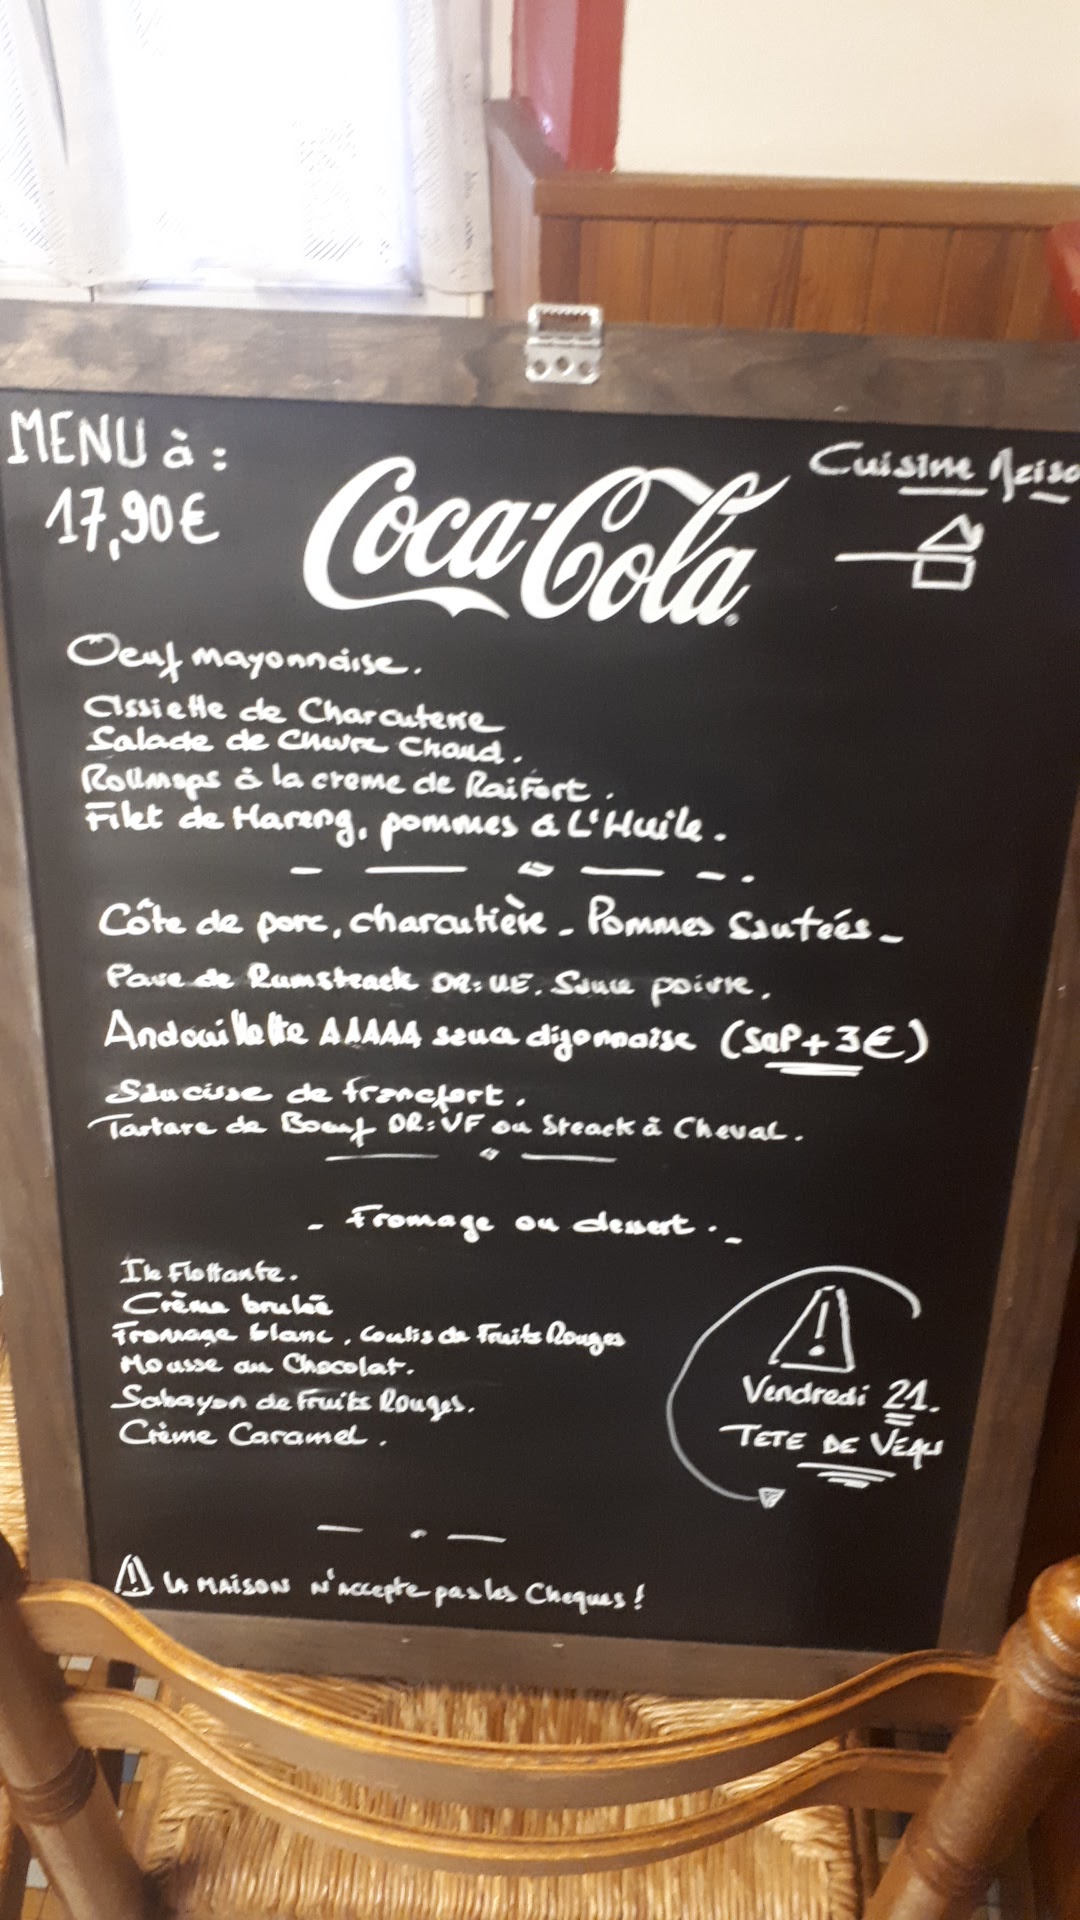 MENU à :
17,90€
Coca-Cola
Cuisine
Oeuf mayonnaise.
Assiette de Charcuterie
Salade de Chevre Chaud.
Rollmops à la creme de Raifort.
Filet de Hareng, pommes à L'Huile.
Côte de porc, charcutière - Pommes Sautées -
Pave de Rumsteack OR: UE. Sauce poivre.
Andouillette AAAAA sauce dijonnaise (SUP + 3€)
Saucisse de francfort.
Tartare de Boeuf OR: VF ou Steack à Cheval.
- Fromage ou dessert. -
Ile Flottante.
Crème brulée
Fromage blanc, Coulis de Fruits Rouges
Mousse au Chocolat.
Sabayon de Fruits Rouges.
Crème Caramel.
Vendredi 21.
TETE DE VEAU
LA MAISON N'ACCepte pas les Cheques !